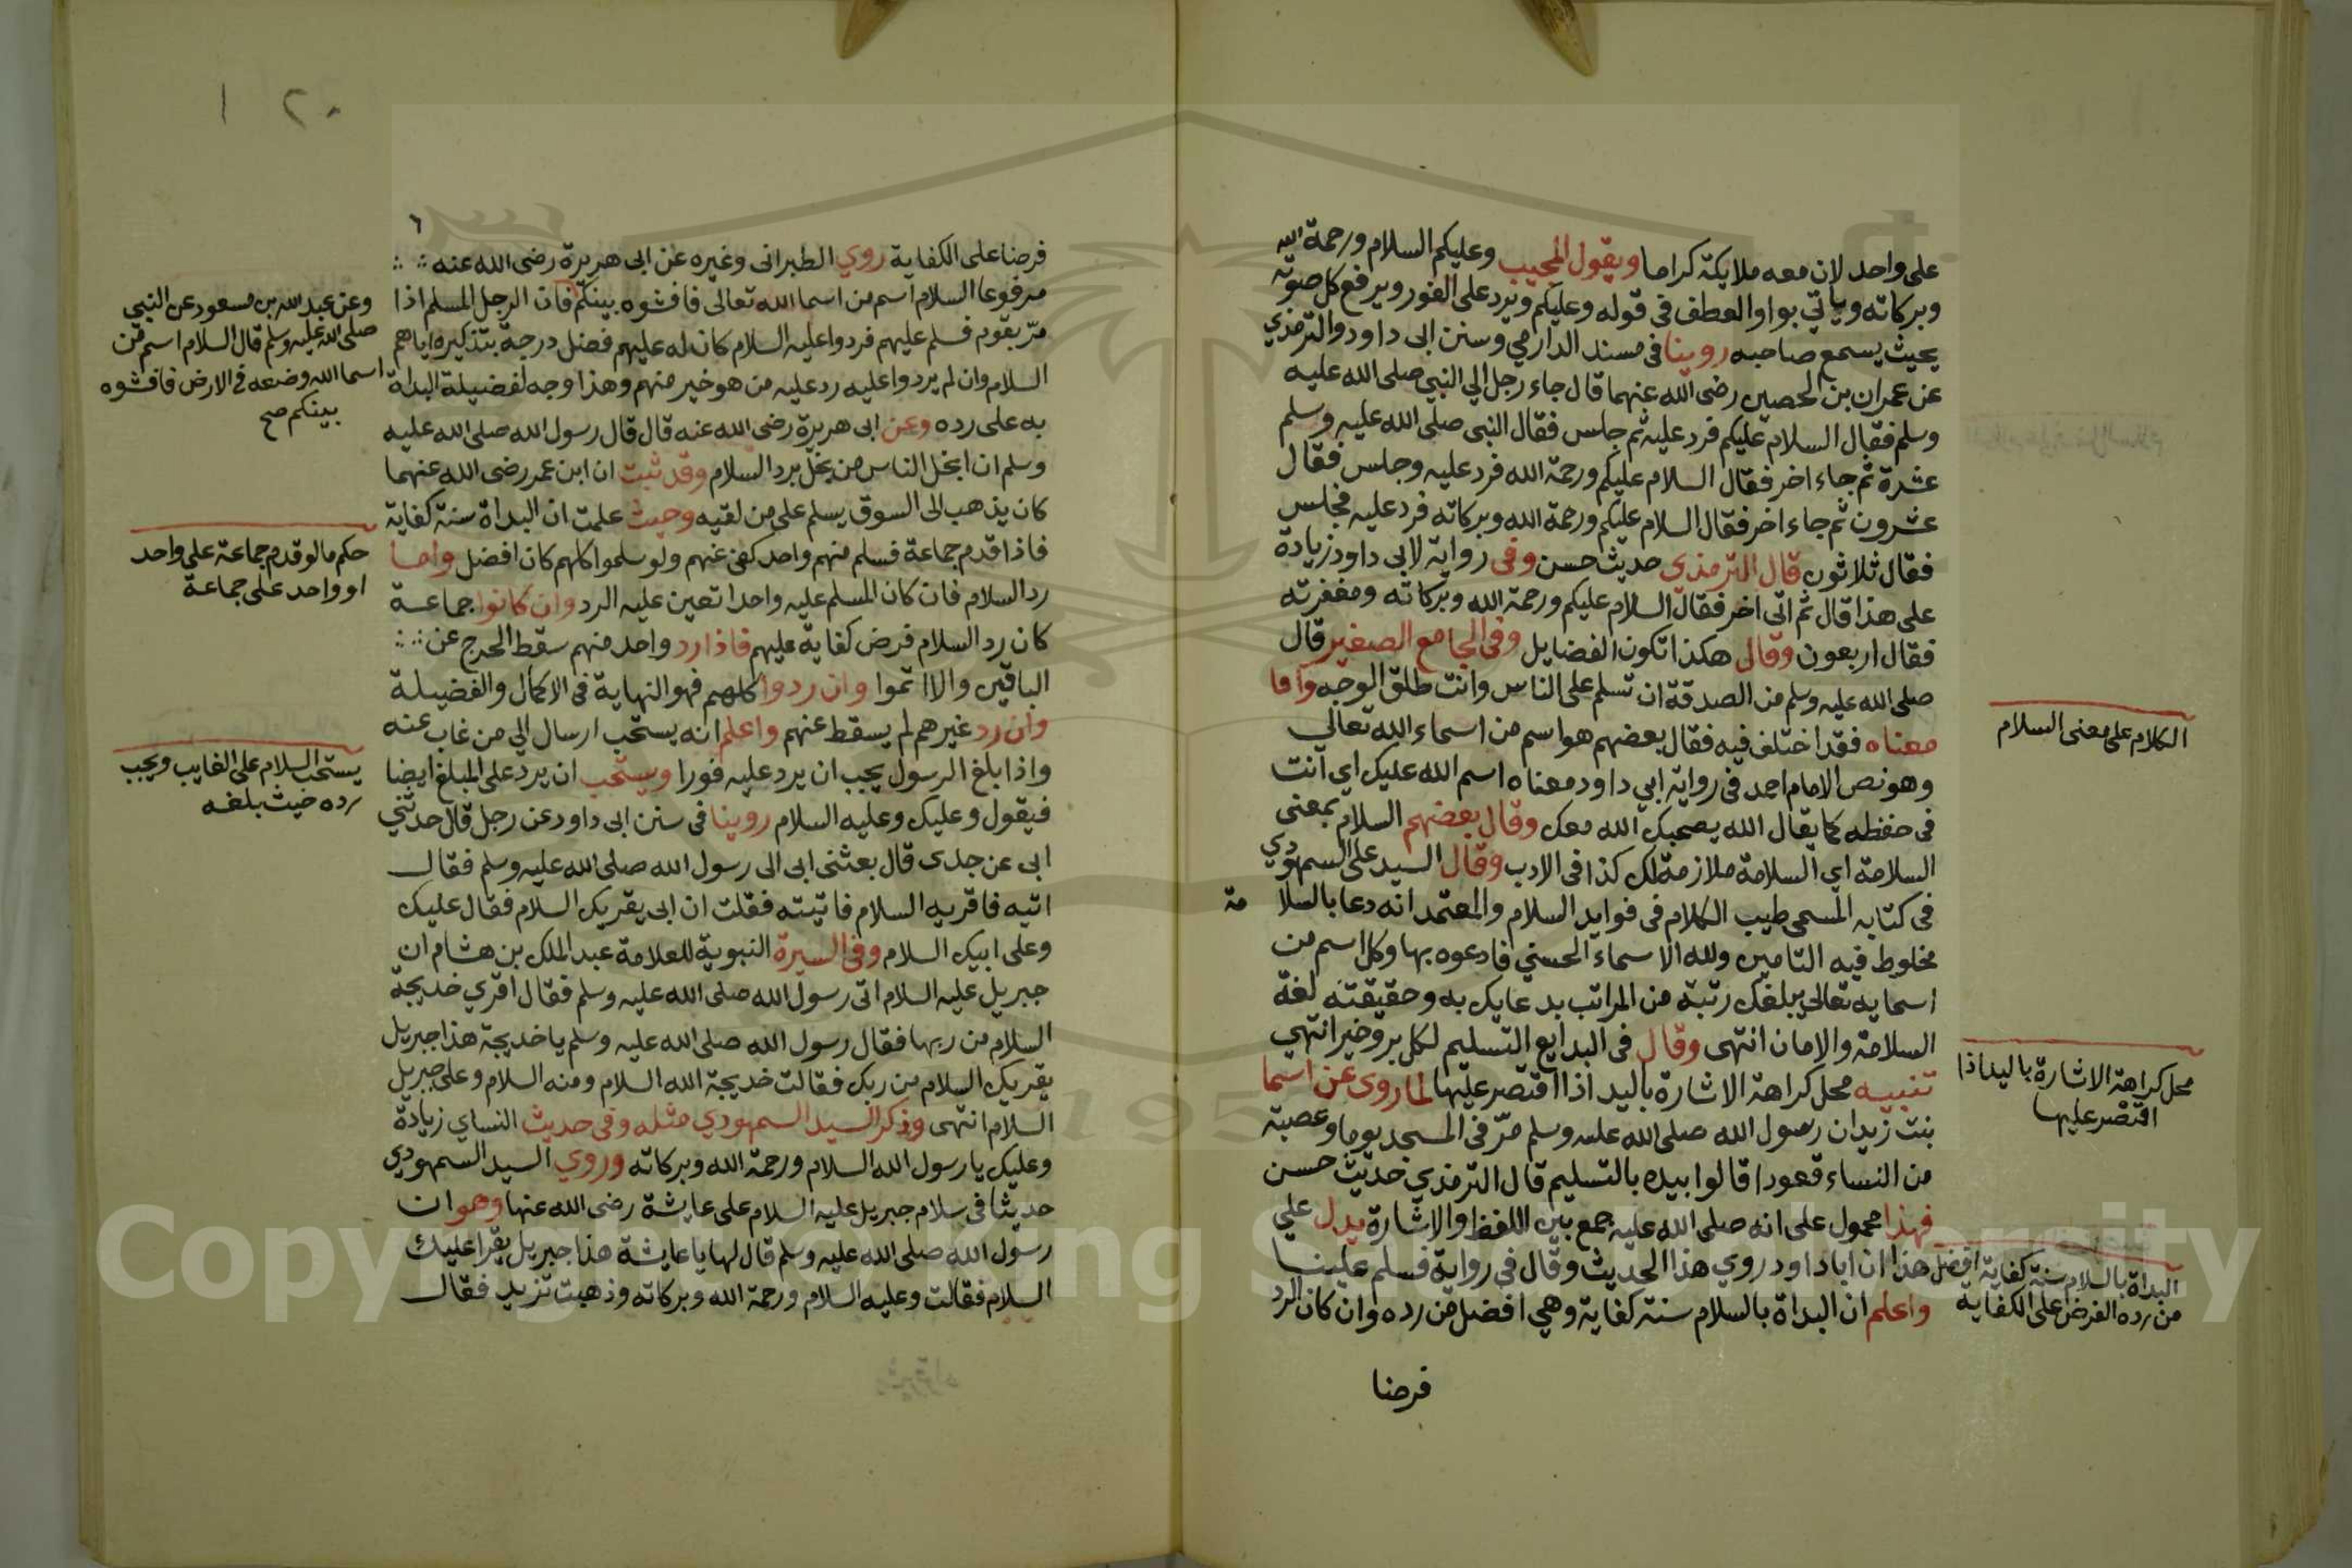 على واحد لان معه ملايكة كراما ويقول المجيب وعليكم السلام ورحمة الله
وبركاته وياتي بواو العطف في قوله وعليكم ويرد على الفور ويرفع كل صوته
بحيث يسمع صاحبه روينا في مسند الدارمي وسنن ابى داود والترمذي
عن عمران بن الحصين رضى الله عنهما قال جاء رجل الي النبي صلى الله عليه
وسلم فقال السلام عليكم فرد عليه ثم جلس فقال النبي صلى الله عليه وسلم
عشرة ثم جاء اخر فقال السلام عليكم ورحمة الله فرد عليه وجلس فقال
عشرون ثم جاء اخر فقال السلام عليكم ورحمة الله وبركاته فرد عليه فجلس
فقال ثلاثون قال الترمذي حديث حسن وفى رواية لابى داود زيادة
على هذا قال ثم اتى اخر فقال السلام عليكم ورحمة الله وبركاته ومغفرته
فقال اربعون وقال هكذا تكون الفضايل وفى الجامع الصغير قال
صلى الله عليه وسلم من الصدقة ان تسلم على الناس وانت طلق الوجه واما
معناه فقد اختلف فيه فقال بعضهم هو اسم من اسماء الله تعالي
وهو نص الامام احمد فى رواية ابي داود معناه اسم الله عليك اي انت
فى حفظه كما يقال الله يصحبك الله معك وقال بعضهم السلام بمعنى
السلامة اي السلامة ملازمة لك كذا فى الادب وقال السيد على السمهودي
فى كتابه المسمى طيب الكلام فى فوايد السلام والمعتمد انه دعا بالسلا مة
مخلوط فيه التامين ولله الاسماء الحسني فادعوه بها وكل اسم من
اسمايه تعالى يبلغك رتبة من المراتب بدعايك به وحقيقته لغة
السلامة والامان انتهى وقال فى البدايع التسليم لكل بر وخير انتهي
تنبيه محل كراهة الاشارة باليد اذا اقتصر عليها لما روى عن اسما
بنت زيد ان رسول الله صلى الله عليه وسلم مرّ فى المسجد يوما وعصبة
من النساء قعود اقالوا بيده بالتسليم قال الترمذي حديث حسن
فهذا محمول على انه صلى الله عليه جمع بين اللفظ والاشارة يدل علي
هذا ان ابا داود روي هذا الحديث وقال في رواية فسلم علينا
واعلم ان البداة بالسلام سنة كفاية وهي افضل من رده وان كان الرد
فرضا
الكلام على معنى السلام
محل كراهة الاشارة باليد اذا
اقتصر عليها
البداة بالسلام سنة كفاية افضل
من رده الفرض على الكفاية
٢٠ ١
٦
فرضا على الكفاية روي الطبرانى وغيره عن ابى هريرة رضى الله عنه
مرفوعا السلام اسم من اسما الله تعالى فافشوه بينكم فان الرجل المسلم اذا
مرّ بقوم فسلم عليهم فردوا عليه السلام كان له عليهم فضل درجة بتذكيره اياهم
السلام وان لم يردوا عليه رد عليه من هو خير منهم وهذا وجه لفضيلة البداة
به على رده وعن ابى هريرة رضى الله عنه قال قال رسول الله صلى الله عليه
وسلم ان ابخل الناس من بخل برد السلام وقد ثبت ان ابن عمر رضى الله عنهما
كان يذهب الى السوق يسلم على من لقيه وحيث علمت ان البداة سنة كفاية
فاذا قدم جماعة فسلم منهم واحد كفى عنهم ولو سلموا كلهم كان افضل واما
رد السلام فان كان المسلم عليه واحدا تعين عليه الرد وان كانوا جماعة
كان رد السلام فرض كفاية عليهم فاذا رد واحد منهم سقط الحرج عن
الباقين والا اثموا وان ردوا كلهم فهو النهاية فى الاكمال والفضيلة
وان رد غيرهم لم يسقط عنهم واعلم انه يستحب ارسال الي من غاب عنه
واذا بلغ الرسول يجب ان يرد عليه فورا ويستحب ان يرد على المبلغ ايضا
فيقول وعليك وعليه السلام روينا فى سنن ابى داود عن رجل قال حدثني
ابى عن جدى قال بعثنى ابى الى رسول الله صلى الله عليه وسلم فقال
اتيه فاقريه السلام فاتيته فقلت ان ابى يقريك السلام فقال عليك
وعلى ابيك السلام وفى السيرة النبوية للعلامة عبد الملك بن هشام ان
جبريل عليه السلام اتى رسول الله صلى الله عليه وسلم فقال اقري خديجة
السلام من ربها فقال رسول الله صلى الله عليه وسلم يا خديجة هذا جبريل
يقريك السلام من ربك فقالت خديجة الله السلام ومنه السلام وعلى جبريل
السلام انتهى وذكر السيد السمهودي مثله وفى حديث النساي زيادة
وعليك يا رسول الله السلام ورحمة الله وبركاته وروي السيد السمهودي
حديثا فى سلام جبريل عليه السلام على عايشة رضى الله عنها وهو ان
رسول الله صلى الله عليه وسلم قال لها يا عايشة هذا جبريل يقرا عليك
السلام فقالت وعليه السلام ورحمة الله وبركاته وذهبت تزيد فقال
وعن عبد الله بن مسعود عن النبي
صلى الله عليه وسلم قال السلام اسم من
اسما الله وضعه فى الارض فافشوه
بينكم صح
حكم ما لو قدم جماعة على واحد
او واحد على جماعة
يستحب السلام على الغايب ويجب
رده حيث بلغه
1957
Copyright © King Saud University